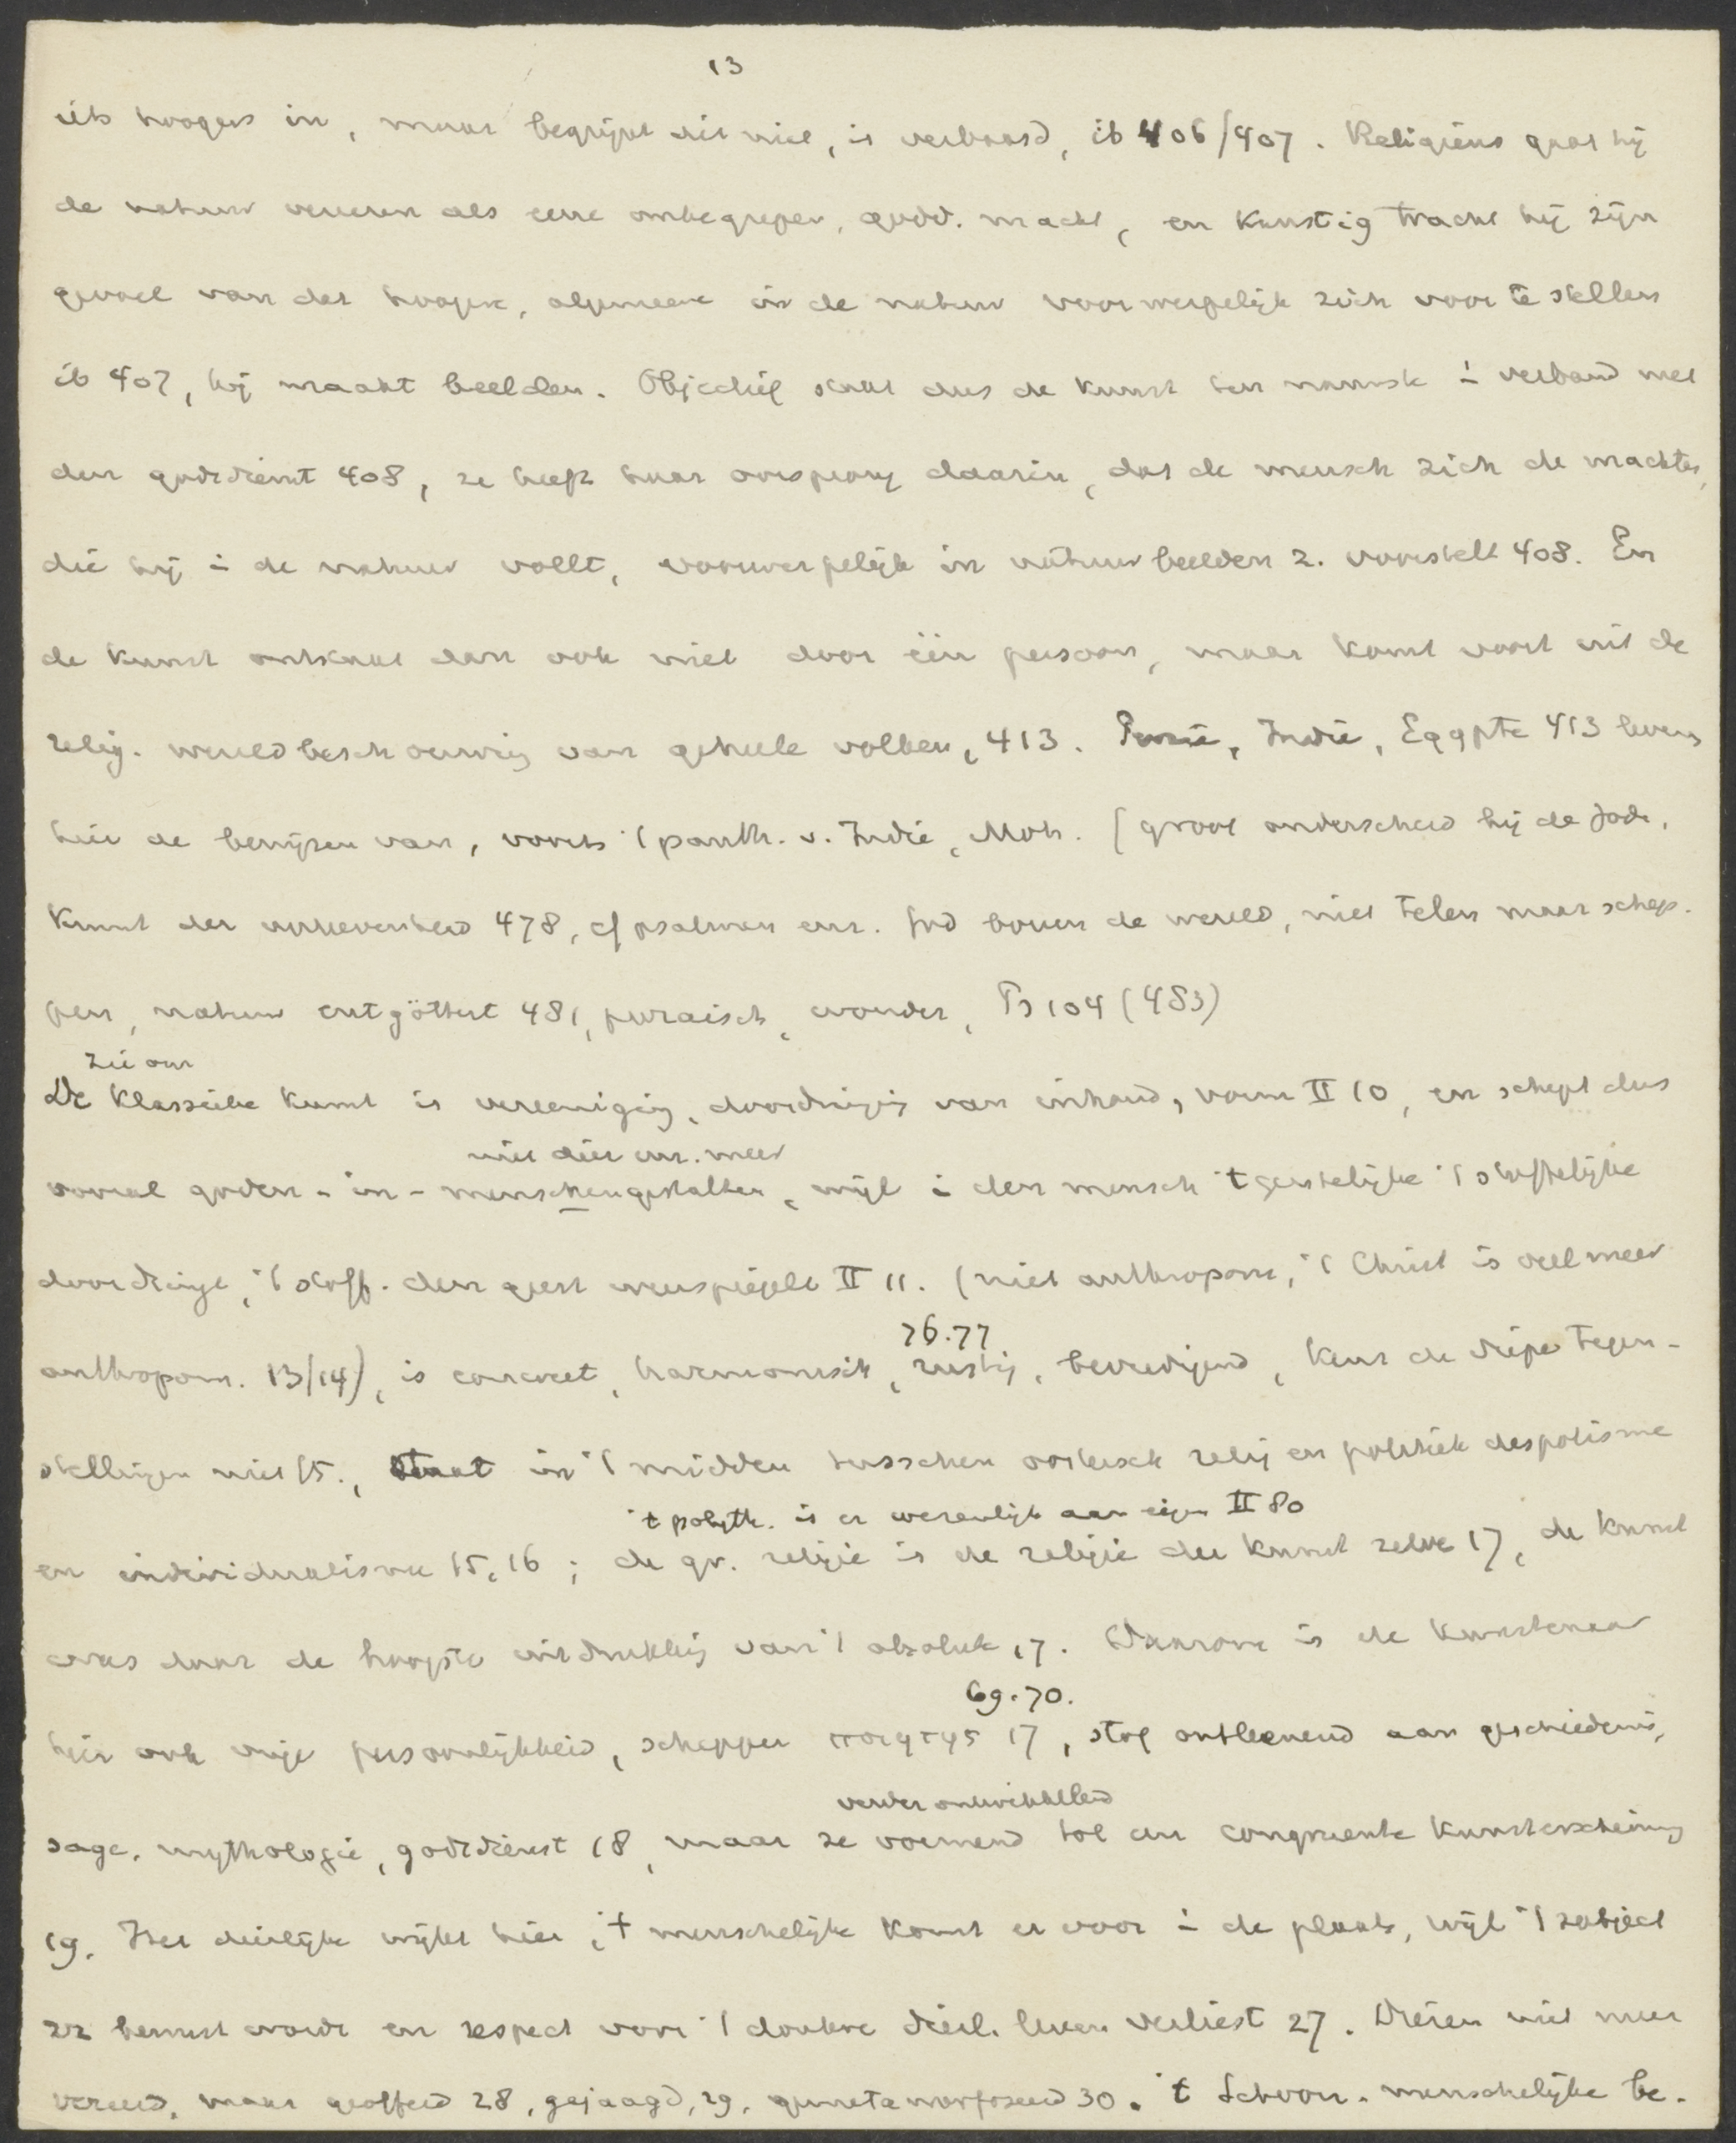 13
iets hoogers in, maar begrijpt dit niet, is verbaasd, ib 406/407. Religieus gaat hij
de natuur vereeren als eene onbegrepen, godd. macht, en kunstig tracht hij zijn
gevoel van dat hoogere, algemeene in de natuur voorwerpelijk zich voor te stellen
ib 407, hij maakt beelden. Objectief staat dus de kunst ten nauwste i verband met
den godsdienst 408, ze heeft haar oorsprong daarin, dat de mensch zich de machten,
die hij i de natuur voelt, voorwerpelijk in natuurbeelden z. voorstelt 408. En
de kunst ontstaat dan ook niet door één persoon, maar komt voort uit de
relig. wereldbeschouwing van geheele volken, 413. Perzië, Indië, Egypte 413 leveren
hier de bewijzen van, voorts 't panth. v. Indië, Moh. (groot onderscheid bij de Jode,
Kunst der verhevenheid 478, cf psalmen enz. God boven de wereld, niet telen maar schep-
pen, natuur entgöttert 481, prozaisch, wonder, Ps 104 (483)
zie om
De Klassieke kunst is vereeniging, doordringing van inhoud, vorm II 10, en schept dus
niet dier enz. meer
vooral goden-in-menschengestalten, wijl i den mensch 't geestelijke 't stoffelijke
doordringt, 't stoff. den geest weerspiegelt II 11. (niet anthropom, 't Christ is veel meer
anthropom. 13/14), is concreet, harmonisch, rustig, bevredigend, kent de diepe tegen-
76.77
stellingen niet 15., staat in 't midden tusschen oostersch relig en politiek despotisme
't polyth. is er wezenlijk aan eigen II 80
en individualisme 15, 16; de gr. religie is de religie der kunst zelve 17, de kunst
was daar de hoogste uitdrukking van 't absolute 17. Daarom is de kunstenaar
69.70.
hier ook vrije persoonlijkheid, schepper ποιητης 17, stof ontleenend aan geschiedenis,
verder ontwikkelend
sage, mythologie, godsdienst 18, maar ze vormend tot een congruente kunstverscheining
19. Het dierlijke wijkt hier, 't menschelijke komt er voor i de plaats, wijl 't subject
zz bewust wordt en respect voor 't donkere dierl. leven verliest 27. Dieren niet meer
vereerd, maar geofferd 28, gejaagd, 29, gemetamorfoseerd 30. 't Schoon-menschelijke be-